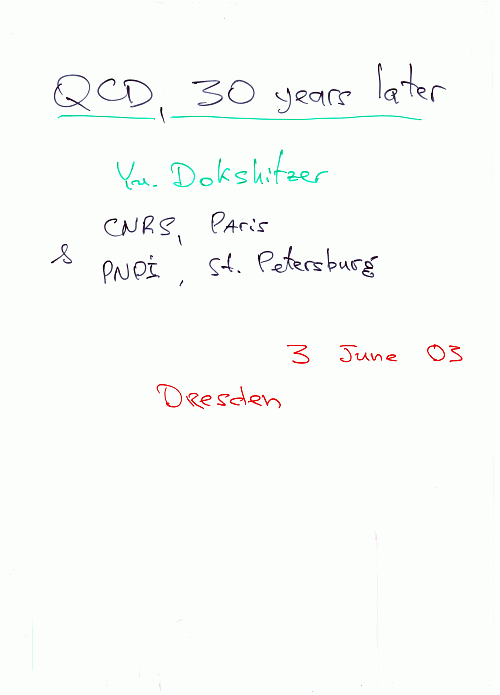 QCD, 30 years later
Yu. Dokshitzer
CNRS, Paris
& PNPI, St. Petersburg
3 June 03
Dresden